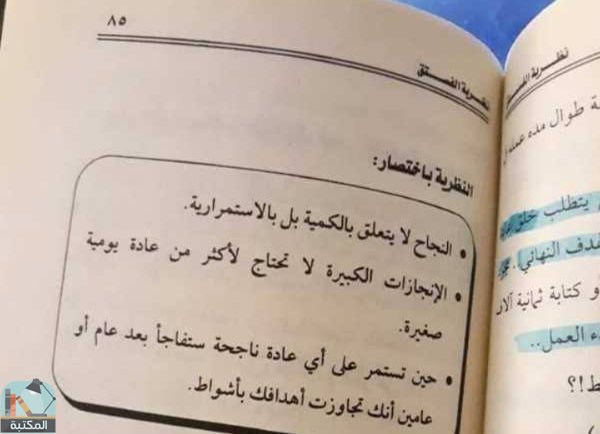 ٨٥
نظرية الفستق
النظرية باختصار:
• النجاح لا يتعلق بالكمية بل بالاستمرارية.
• الإنجازات الكبيرة لا تحتاج لأكثر من عادة يومية
صغيرة.
• حين تستمر على أي عادة ناجحة ستفاجأ بعد عام أو
عامين أنك تجاوزت أهدافك بأشواط.
نظرية
طوال مده عمله
يتطلب خلق
الهدف النهائي).
أو كتابة ثمانية
العمل..
المكتبة